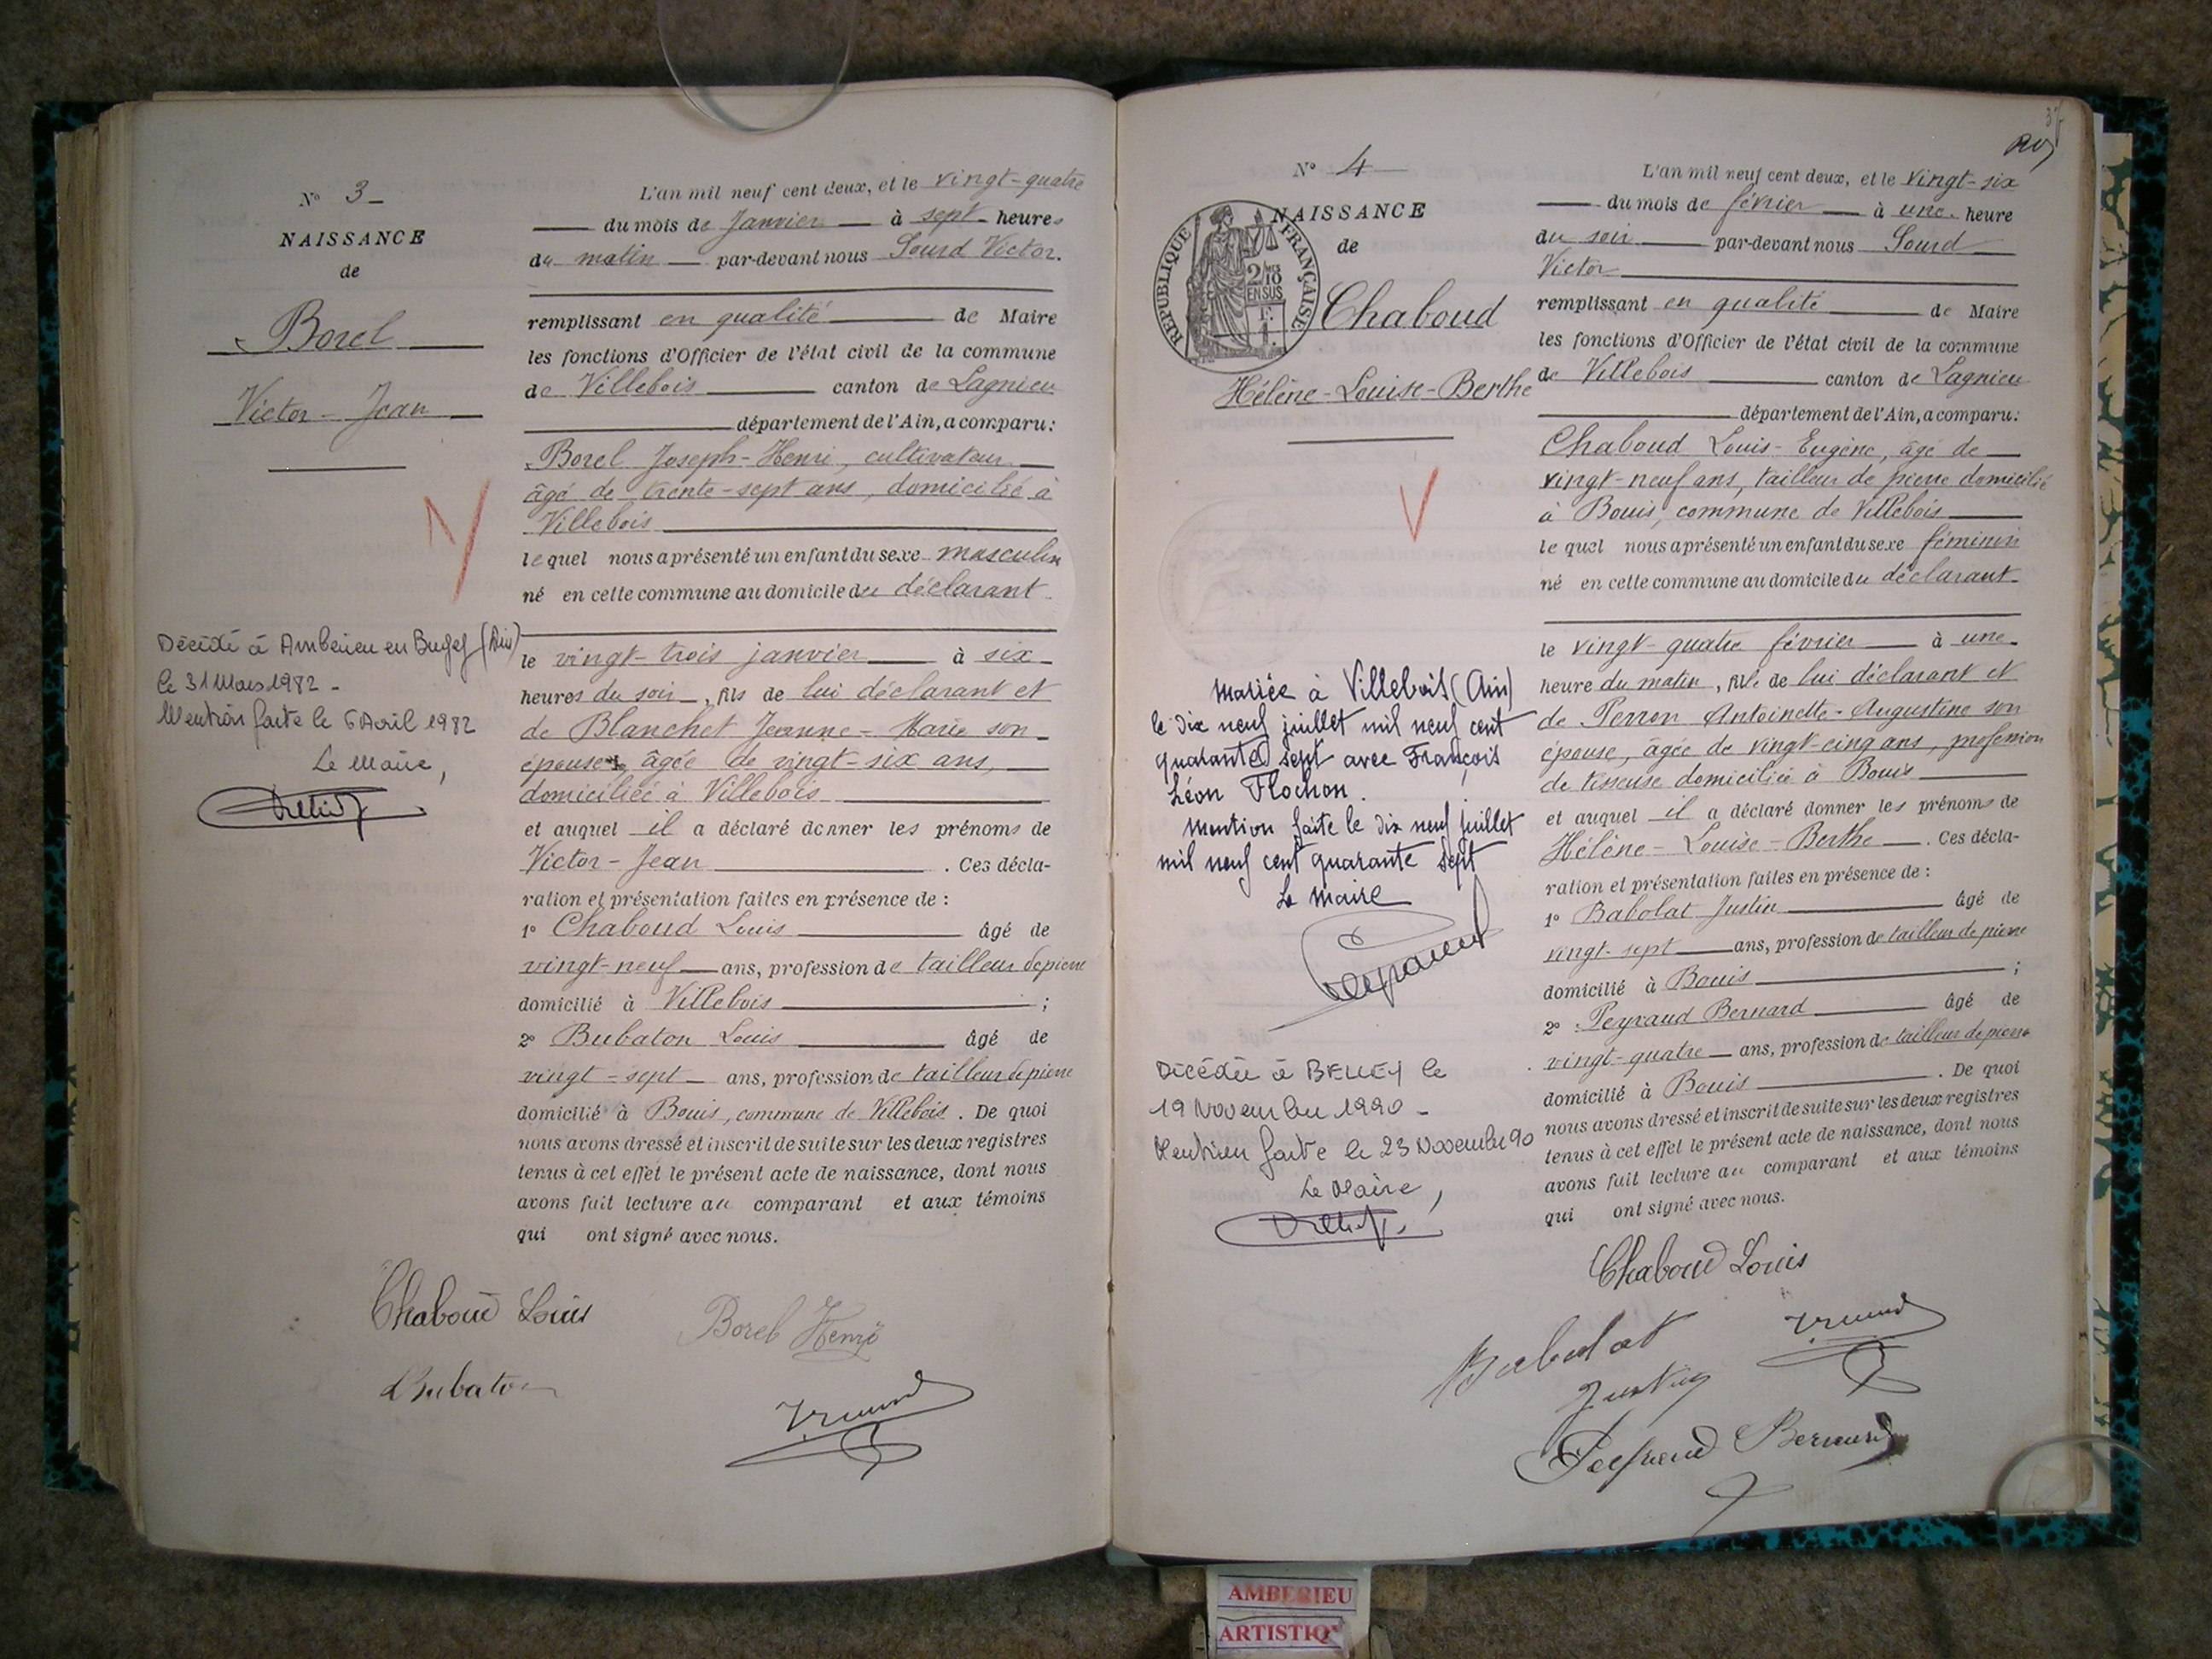 N° 3
NAISSANCE
de
Borel
Victor - Jean
Décédé à Ambérieu en Bugey (Ain)
le 31 Mars 1982 -
Mention faite le 6 Avril 1982
Le Maire,
L'an mil neuf cent deux, et le vingt-quatre
du mois de Janvier à sept heures
du matin par-devant nous Sourd Victor.
remplissant en qualité de Maire
les fonctions d'Officier de l'état civil de la commune
de Villebois canton de Lagnieu
département de l'Ain, a comparu:
Borel Joseph-Henri, cultivateur
âgé de trente-sept ans, domicilié à
Villebois
lequel nous a présenté un enfant du sexe masculin
né en cette commune au domicile du déclarant
le vingt-trois janvier à six
heures du soir, fils de lui déclarant et
de Blanchet Jeanne-Marie son
épouse, âgée de vingt-six ans,
domiciliée à Villebois
et auquel il a déclaré donner les prénoms de
Victor-Jean. Ces décla-
ration et présentation faites en présence de :
1° Chaboud Louis âgé de
vingt-neuf ans, profession de tailleur de pierre
domicilié à Villebois ;
2° Bubaton Louis âgé de
vingt-sept ans, profession de tailleur de pierre
domicilié à Bouis, commune de Villebois. De quoi
nous avons dressé et inscrit de suite sur les deux registres
tenus à cet effet le présent acte de naissance, dont nous
avons fait lecture au comparant et aux témoins
qui ont signé avec nous.
Chaboud Louis
Borel Henri
Bubaton
N° 4
NAISSANCE
de
RÉPUBLIQUE FRANÇAISE
2/10 EN SUS
Chaboud
Hélène-Louise-Berthe
Mariée à Villebois (Ain)
le dix neuf juillet mil neuf cent
quarante sept avec François
Léon Flochon.
Mention faite le dix neuf juillet
mil neuf cent quarante sept
Le Maire
Décédée à BELLEY le
19 Novembre 1990 -
Mention faite le 23 Novembre 90
Le Maire,
L'an mil neuf cent deux, et le vingt-six
du mois de février à une heure
du soir par-devant nous Sourd
Victor
remplissant en qualité de Maire
les fonctions d'Officier de l'état civil de la commune
de Villebois canton de Lagnieu
département de l'Ain, a comparu:
Chaboud Louis-Eugène, âgé de
vingt-neuf ans, tailleur de pierre domicilié
à Bouis, commune de Villebois
lequel nous a présenté un enfant du sexe féminin
né en cette commune au domicile du déclarant
le vingt-quatre février à une
heure du matin, fille de lui déclarant et
de Perron Antoinette-Augustine son
épouse, âgée de vingt-cinq ans, profession
de tisseuse domiciliée à Bouis
et auquel il a déclaré donner les prénoms de
Hélène-Louise-Berthe. Ces décla-
ration et présentation faites en présence de :
1° Babolat Justin âgé de
vingt-sept ans, profession de tailleur de pierre
domicilié à Bouis ;
2° Peyraud Bernard âgé de
vingt-quatre ans, profession de tailleur de pierre
domicilié à Bouis. De quoi
nous avons dressé et inscrit de suite sur les deux registres
tenus à cet effet le présent acte de naissance, dont nous
avons fait lecture au comparant et aux témoins
qui ont signé avec nous.
Chaboud Louis
Babolat
Justin
Peyraud Bernard
AMBERIEU
ARTISTIQ